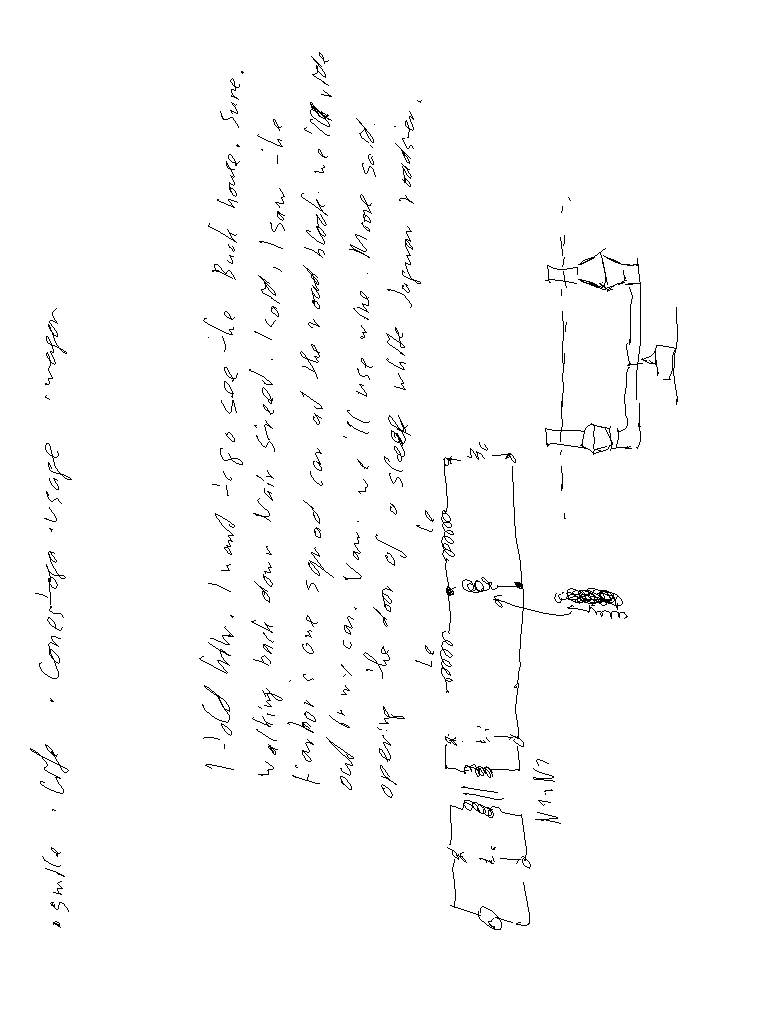 smile . life . Conestoga . usage . wagon
I told him. I want to go see the Buck house. Sure.
walking back down Main Street. I said, I saw the
Harbor's one squad car at the road block. we'll ride
out in my car. Van. we'll use mine. Moore said.
opening the door of a sleek white Jaguar roadster.
Le Le
N1:N2